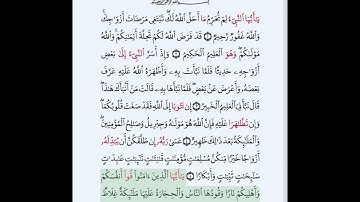 يَٰٓأَيُّهَا اَ۬لنَّبِيٓءُ لِمَ تُحَرِّمُ مَآ أَحَلَّ اَ۬للَّهُ لَكَۖ تَبْتَغِي مَرْضَاتَ أَزْوَٰجِكَۚ
وَاللَّهُ غَفُورٌ رَّحِيمٌ ۝ قَدْ فَرَضَ اَ۬للَّهُ لَكُمْ تَحِلَّةَ أَيْمَٰنِكُمْۚ وَاللَّهُ
مَوْلَىٰكُمْۖ وَهُوَ اَ۬لْعَلِيمُ اُ۬لْحَكِيمُ ۝ وَإِذَ اَسَرَّ اَ۬لنَّبِيٓءُ إِلَىٰ بَعْضِ
أَزْوَٰجِهِۦ حَدِيثًا فَلَمَّا نَبَّأَتْ بِهِۦ وَأَظْهَرَهُ اُ۬للَّهُ عَلَيْهِ عَرَّفَ
بَعْضَهُۥ وَأَعْرَضَ عَنۢ بَعْضٍۖ فَلَمَّا نَبَّأَهَا بِهِۦ قَالَتْ مَنْ أَنۢبَأَكَ هَٰذَاۖ
قَالَ نَبَّأَنِيَ اَ۬لْعَلِيمُ اُ۬لْخَبِيرُ ۝ إِن تَتُوبَآ إِلَى اَ۬للَّهِ فَقَدْ صَغَتْ قُلُوبُكُمَاۖ
وَإِن تَظَّٰهَرَا عَلَيْهِ فَإِنَّ اَ۬للَّهَ هُوَ مَوْلَىٰهُ وَجِبْرِيلُ وَصَٰلِحُ اُ۬لْمُؤْمِنِينَۖ
وَالْمَلَٰٓئِكَةُ بَعْدَ ذَٰلِكَ ظَهِيرٌ ۝ عَسَىٰ رَبُّهُۥٓ إِن طَلَّقَكُنَّ أَنْ يُبَدِّلَهُۥٓ
أَزْوَٰجًا خَيْرًا مِّنكُنَّ مُسْلِمَٰتٍ مُّؤْمِنَٰتٍ قَٰنِتَٰتٍ تَٰٓئِبَٰتٍ عَٰبِدَٰتٍ
سَٰٓئِحَٰتٍ ثَيِّبَٰتٍ وَأَبْكَارًا ۝ يَٰٓأَيُّهَا اَ۬لذِينَ ءَامَنُوا قُوٓا أَنفُسَكُمْ
وَأَهْلِيكُمْ نَارًا وَقُودُهَا اَ۬لنَّاسُ وَالْحِجَارَةُ عَلَيْهَا مَلَٰٓئِكَةٌ غِلَاظٌ